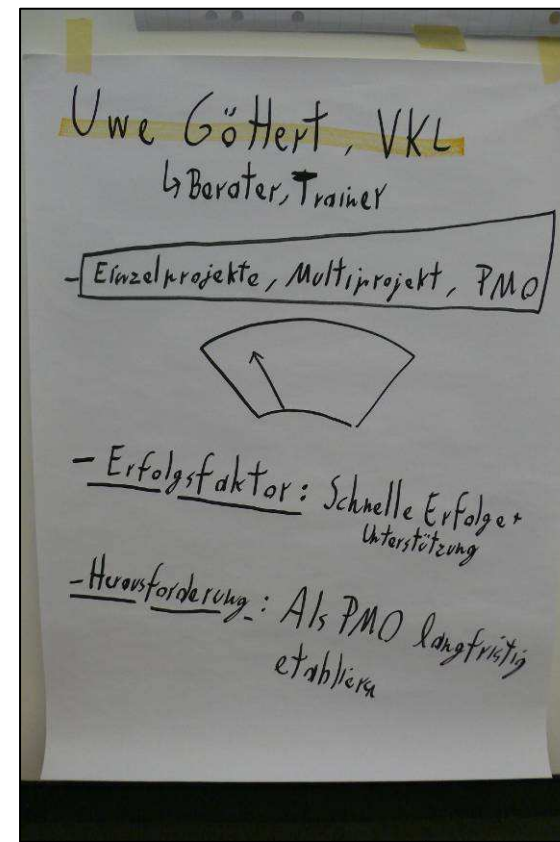 Uwe Göttert, VKL
↳ Berater, Trainer
- Einzelprojekte, Multiprojekt, PMO
- Erfolgsfaktor: Schnelle Erfolge +
Unterstützung
- Herausforderung: Als PMO langfristig
etablieren